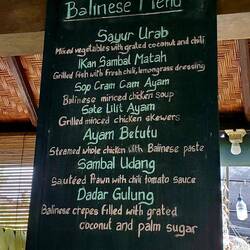 Balinese Menu
Sayur Urab
Mixed vegetables with grated coconut and chili
IKan Sambal Matah
Grilled Fish with Fresh chili, lemongrass dressing
Sop Cram Cam Ayam
Balinese minced chicken soup
Sate Lilit Ayam
Grilled minced chicken skewers
Ayam Betutu
Steamed whole chicken with Balinese paste
Sambal Udang
Sautéed Prawn with chili tomato sauce
Dadar Gulung
Balinese crepes filled with grated
coconut and palm sugar